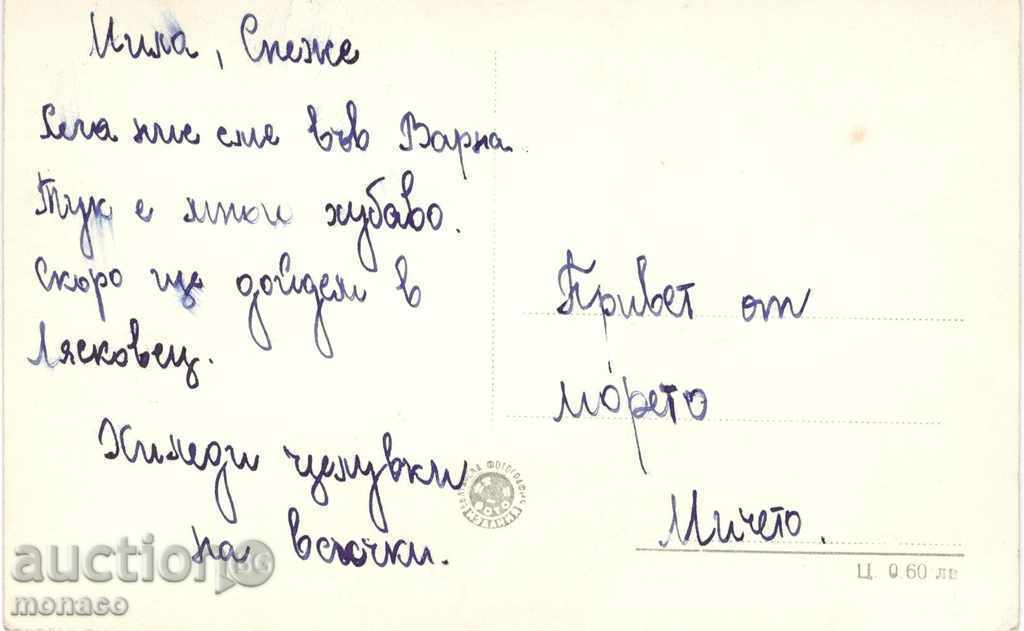 Мила, Снеже
Сега ние сме във Варна.
Тук е много хубаво.
Скоро ще дойдем в
Лясковец.
Хиляди целувки
на всички.
Привет от
морето
Мичето.
Ц. 0.60 лв
auction.BG
monaco